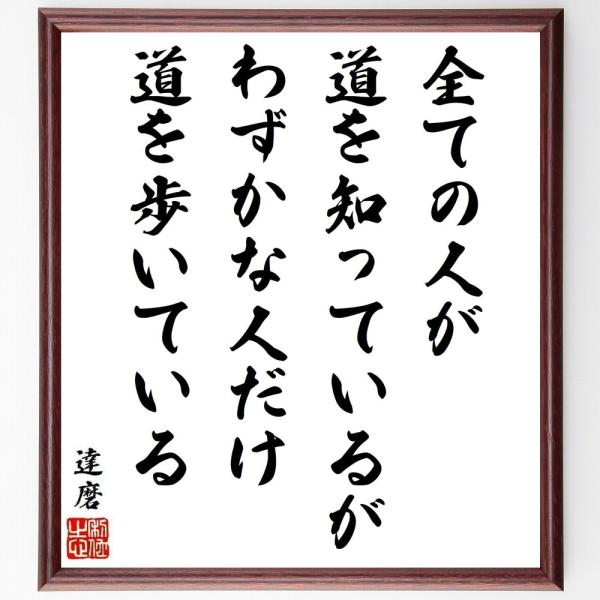 全ての人が
道を知っているが
わずかな人だけ
道を歩いている
達磨